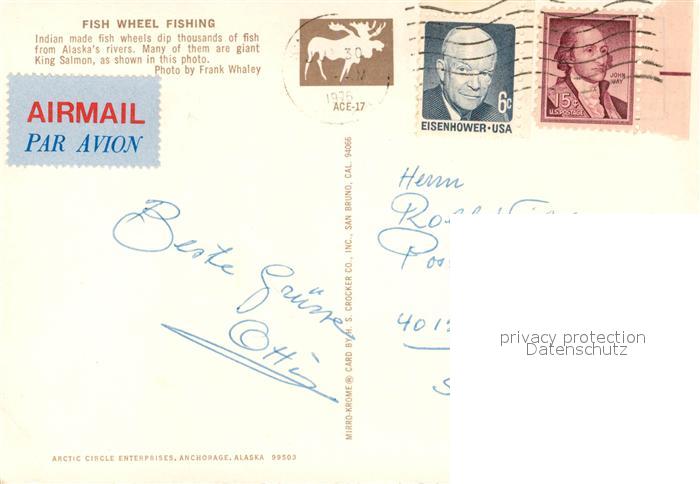 FISH WHEEL FISHING
Indian made fish wheels dip thousands of fish
from Alaska's rivers. Many of them are giant
King Salmon, as shown in this photo.
Photo by Frank Whaley
AIRMAIL
PAR AVION
30
1975
ACE-17
6c
EISENHOWER·USA
JOHN JAY
15¢
U.S. POSTAGE
MIRRO-KROME® CARD BY H. S. CROCKER CO., INC., SAN BRUNO, CAL. 94066
Herrn
Beste Grüsse
privacy protection
Datenschutz
ARCTIC CIRCLE ENTERPRISES, ANCHORAGE, ALASKA 99503